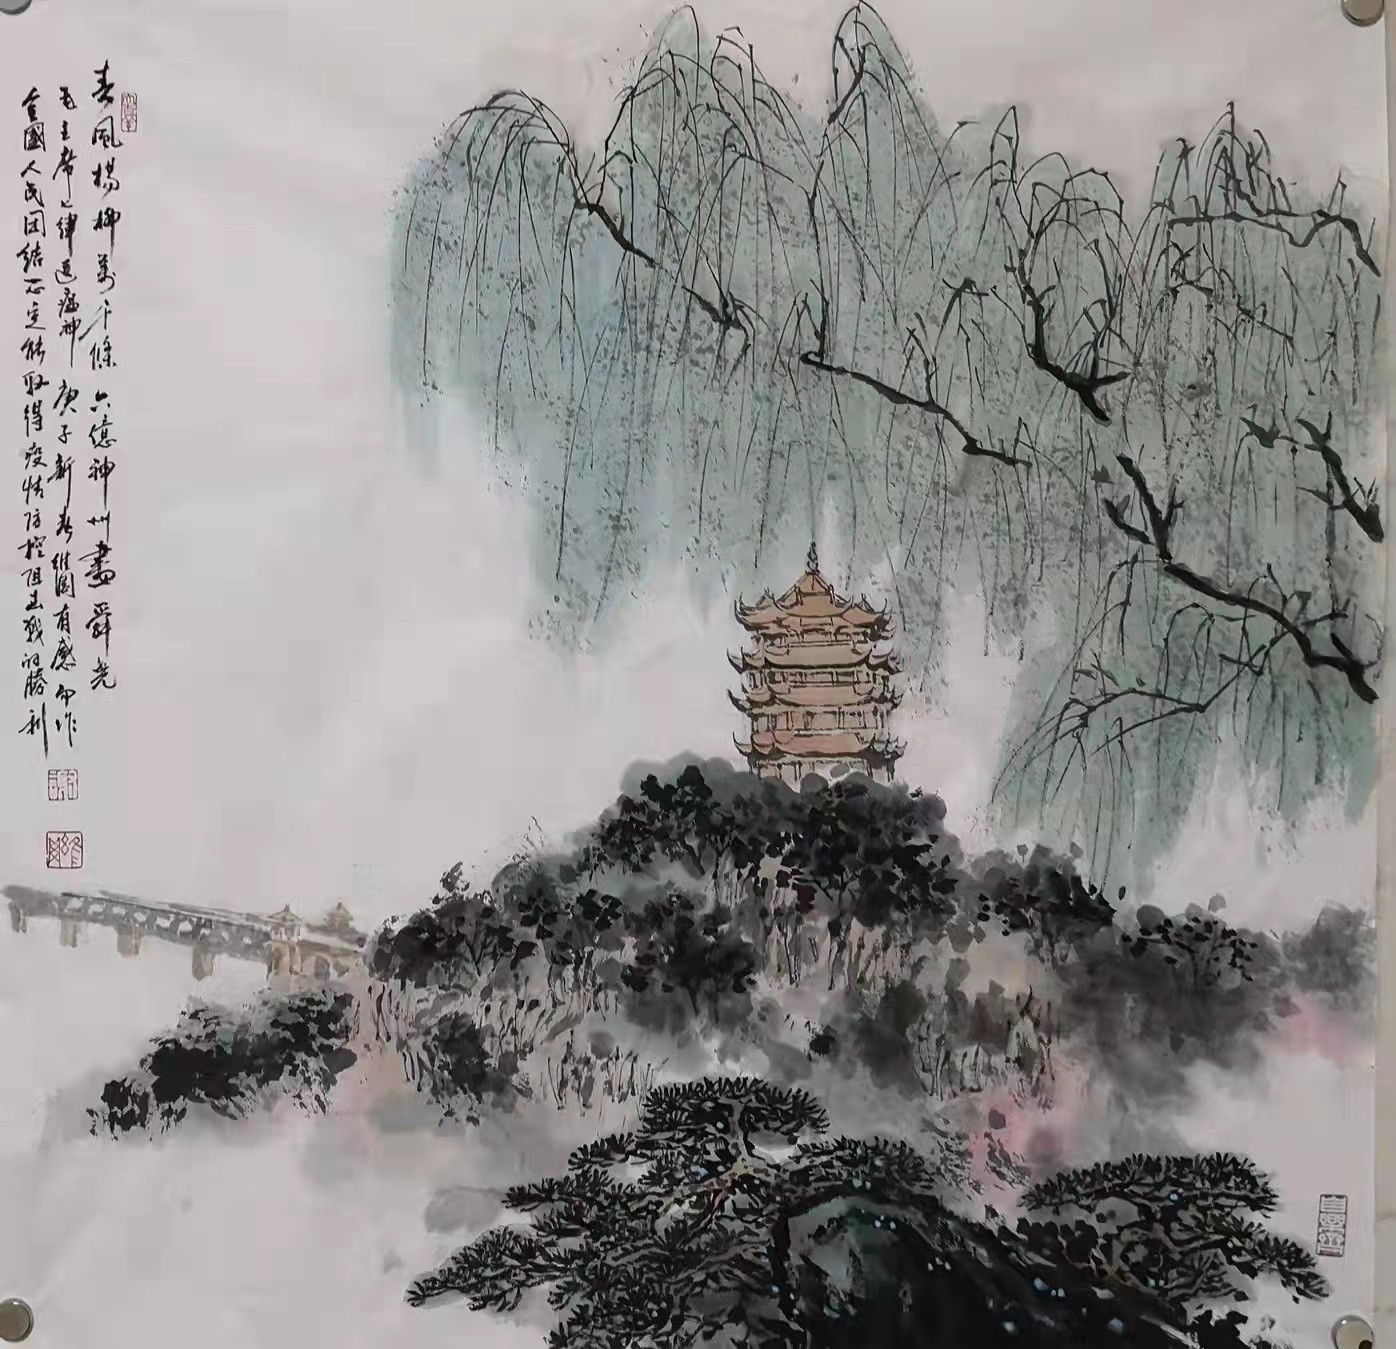 春風楊柳萬千條六億神州盡舜堯
毛主席七律送瘟神庚子新春維國有感而作
全國人民团结一定能取得疫情防控阻击战的勝利